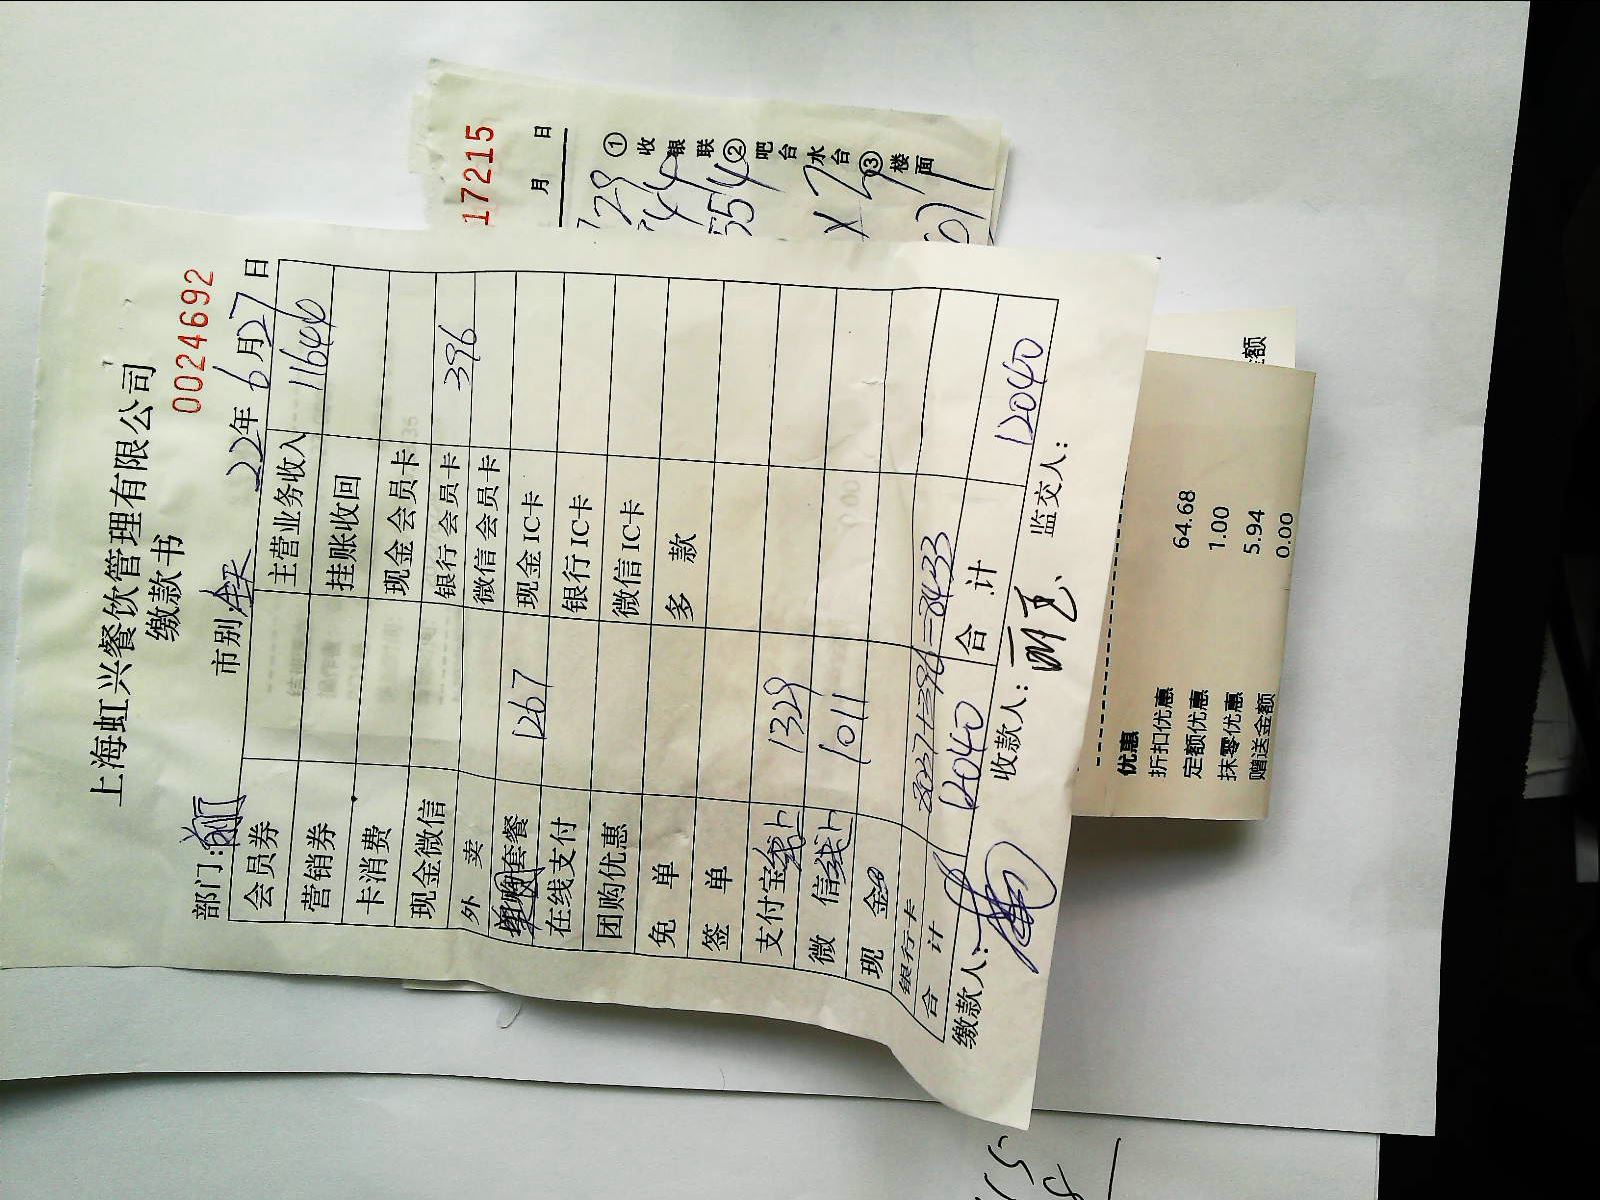 上海虹兴餐饮管理有限公司
缴款书
00024692
部门: 市别 22年6月27日
会员券 主营业务收入 11644
营销券 挂账收回
卡消费 现金会员卡
现金微信 银行会员卡 396
外 卖 微信会员卡
套餐 1267 现金IC卡
在线支付 银行IC卡
团购优惠 微信IC卡
免 单 多 款
签 单
支付宝线上 1329
微 信线上 1011
现 金
银行卡 8037+396=8433
合 计 12040 合 计 12040
缴款人: 收款人: 监交人:
17215
月 日
①收银联②吧台水台③楼面
554
优惠
折扣优惠 64.68
定额优惠 1.00
抹零优惠 5.94
赠送金额 0.00
额